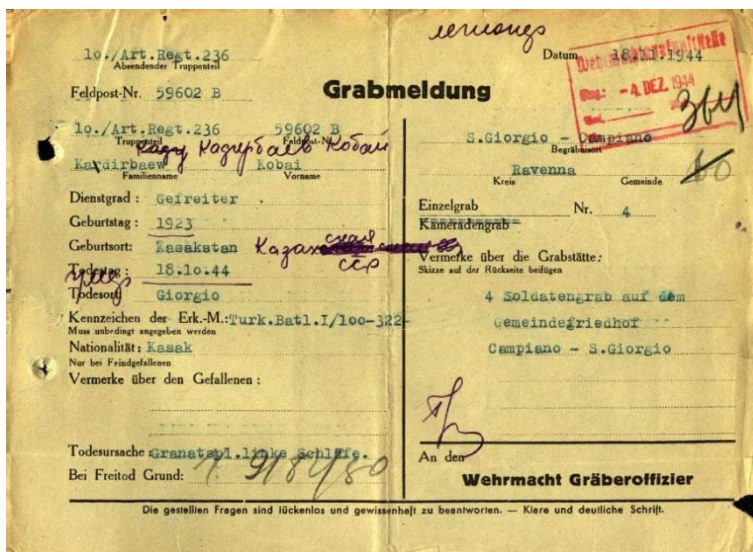 lo./Art.Regt.236
Absendender Truppenteil
Feldpost-Nr. 59602 B
Grabmeldung
Datum 18.11.1944
Eing.: -4. DEZ. 1944
364
lo./Art.Regt.236 59602 B
Truppenteil Feldpost-Nr.
Кадырбаев Кобай
Kardirbaew Kobai
Familienname Vorname
Dienstgrad : Gefreiter
Geburtstag : 1923
Geburtsort: Kasakstan Казахская
ССР
Todestag : 18.10.44
Todesort Giorgio
Kennzeichen der Erk.-M.:Turk.Batl.I/100-322-
Muss unbedingt angegeben werden
Nationalität: Kasak
Nur bei Feindgefallenen
Vermerke über den Gefallenen :
Todesursache :Granatspl.linke Schläfe.
Bei Freitod Grund:
S.Giorgio - Campiano
Begräbnisort
Ravenna
Kreis Gemeinde
Einzelgrab Nr. 4
Kameradengrab
Vermerke über die Grabstätte:
Skizze auf der Rückseite beifügen
4 Soldatengrab auf dem
Gemeindefriedhof
Campiano - S.Giorgio
An den
Wehrmacht Gräberoffizier
Die gestellten Fragen sind lückenlos und gewissenhaft zu beantworten. — Klare und deutliche Schrift.